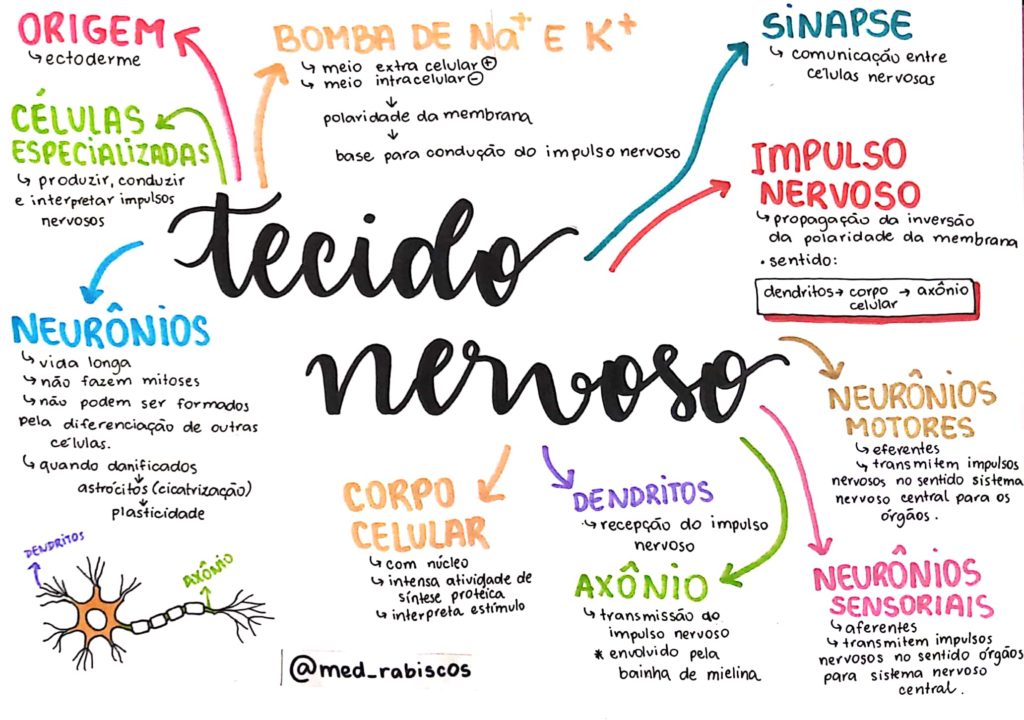 ORIGEM
↳ ectoderme
BOMBA DE Na⁺ E K⁺
↳ meio extra celular ⊕
↳ meio intracelular ⊖
↓
polaridade da membrana
↓
base para condução do impulso nervoso
SINAPSE
↳ comunicação entre
células nervosas
CÉLULAS
ESPECIALIZADAS
↳ produzir, conduzir
e interpretar impulsos
nervosos
IMPULSO
NERVOSO
↳ propagação da inversão
da polaridade da membrana
• sentido:
dendritos → corpo → axônio
celular
tecido
nervoso
NEURÔNIOS
↳ vida longa
↳ não fazem mitoses
↳ não podem ser formados
pela diferenciação de outras
células.
↳ quando danificados
↓
astrócitos (cicatrização)
↓
plasticidade
NEURÔNIOS
MOTORES
↳ eferentes
↳ transmitem impulsos
nervosos no sentido sistema
nervoso central para os
órgãos.
CORPO
CELULAR
↳ com núcleo
↳ intensa atividade de
síntese protéica
↳ interpreta estímulo
DENDRITOS
↳ recepção do impulso
nervoso
AXÔNIO
↳ transmissão do
impulso nervoso
* envolvido pela
bainha de mielina
NEURÔNIOS
SENSORIAIS
↳ aferentes
↳ transmitem impulsos
nervosos no sentido órgãos
para sistema nervoso
central.
DENDRITOS
AXÔNIO
@med_rabiscos